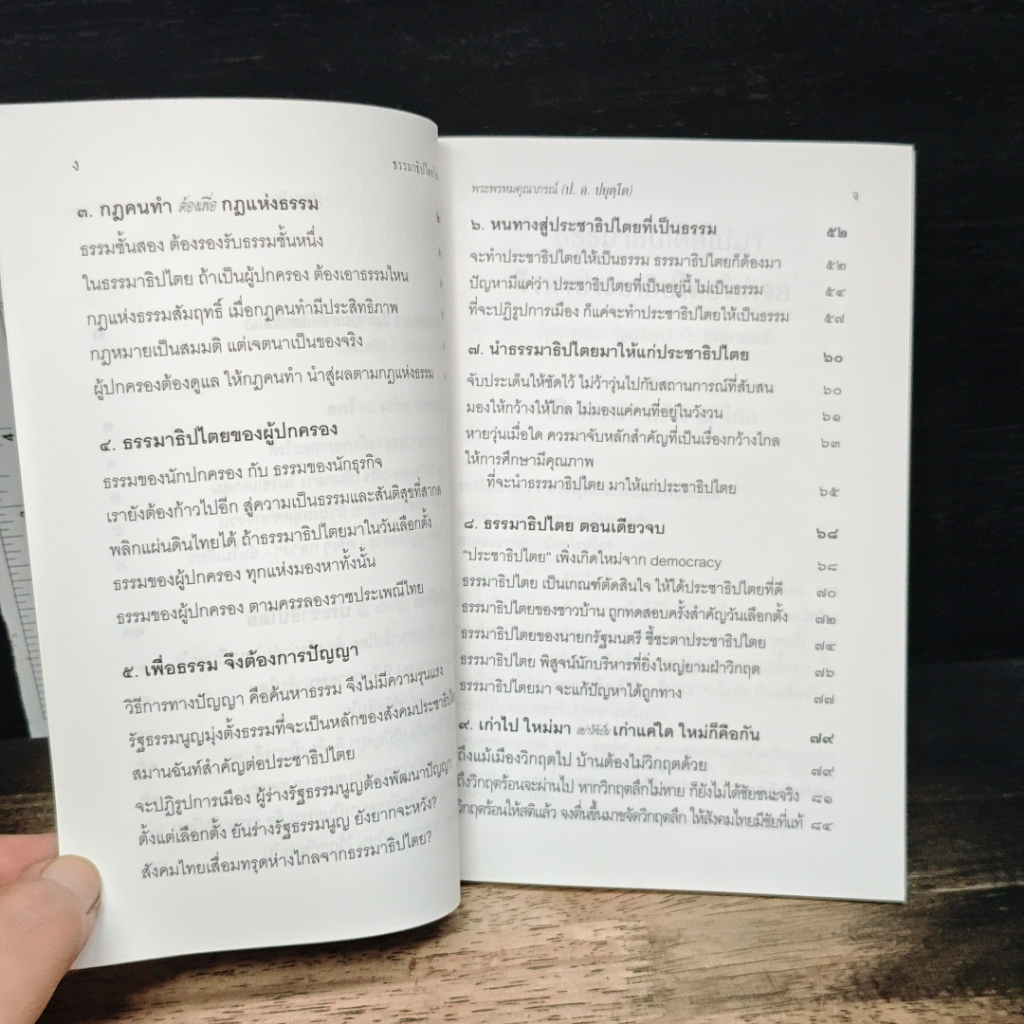 ง
ธรรมาธิปไตย
๓. กฎคนทำ ต้องเพื่อ กฎแห่งธรรม
ธรรมชั้นสอง ต้องรองรับธรรมชั้นหนึ่ง
ในธรรมาธิปไตย ถ้าเป็นผู้ปกครอง ต้องเอาธรรมไหน
กฎแห่งธรรมสัมฤทธิ์ เมื่อกฎคนทำมีประสิทธิภาพ
กฎหมายเป็นสมมติ แต่เจตนาเป็นของจริง
ผู้ปกครองต้องดูแล ให้กฎคนทำ นำสู่ผลตามกฎแห่งธรรม
๔. ธรรมาธิปไตยของผู้ปกครอง
ธรรมของนักปกครอง กับ ธรรมของนักธุรกิจ
เรายังต้องก้าวไปอีก สู่ความเป็นธรรมและสันติสุขที่สากล
พลิกแผ่นดินไทยได้ ถ้าธรรมาธิปไตยมาในวันเลือกตั้ง
ธรรมของผู้ปกครอง ทุกแห่งมองหาทั้งนั้น
ธรรมของผู้ปกครอง ตามครรลองราชประเพณีไทย
๕. เพื่อธรรม จึงต้องการปัญญา
วิธีการทางปัญญา คือค้นหาธรรม จึงไม่มีความรุนแรง
รัฐธรรมนูญมุ่งตั้งธรรมที่จะเป็นหลักของสังคมประชาธิปไ
สมานฉันท์สำคัญต่อประชาธิปไตย
จะปฏิรูปการเมือง ผู้ร่างรัฐธรรมนูญต้องพัฒนาปัญญา
ตั้งแต่เลือกตั้ง ยันร่างรัฐธรรมนูญ ยังยากจะหวัง?
สังคมไทยเสื่อมทรุดห่างไกลจากธรรมาธิปไตย?
พระพรหมคุณาภรณ์ (ป. อ. ปยุตฺโต)
จ
๖. หนทางสู่ประชาธิปไตยที่เป็นธรรม ๕๒
จะทำประชาธิปไตยให้เป็นธรรม ธรรมาธิปไตยก็ต้องมา ๕๒
ปัญหามีแค่ว่า ประชาธิปไตยที่เป็นอยู่นี้ ไม่เป็นธรรม ๕๔
ที่จะปฏิรูปการเมือง ก็แค่จะทำประชาธิปไตยให้เป็นธรรม ๕๗
๗. นำธรรมาธิปไตยมาให้แก่ประชาธิปไตย ๖๐
จับประเด็นให้ชัดไว้ ไม่ว้าวุ่นไปกับสถานการณ์ที่สับสน ๖๐
มองให้กว้างให้ไกล ไม่มองแค่คนที่อยู่ในวังวน ๖๑
หายวุ่นเมื่อใด ควรมาจับหลักสำคัญที่เป็นเรื่องกว้างไกล ๖๓
ให้การศึกษามีคุณภาพ
ที่จะนำธรรมาธิปไตย มาให้แก่ประชาธิปไตย ๖๕
๘. ธรรมาธิปไตย ตอนเดียวจบ ๖๘
"ประชาธิปไตย" เพิ่งเกิดใหม่จาก democracy ๖๘
ธรรมาธิปไตย เป็นเกณฑ์ตัดสินใจ ให้ได้ประชาธิปไตยที่ดี ๗๐
ธรรมาธิปไตยของชาวบ้าน ถูกทดสอบครั้งสำคัญวันเลือกตั้ง ๗๒
ธรรมาธิปไตยของนายกรัฐมนตรี ชี้ชะตาประชาธิปไตย ๗๔
ธรรมาธิปไตย พิสูจน์นักบริหารที่ยิ่งใหญ่ยามฝ่าวิกฤต ๗๖
ธรรมาธิปไตยมา จะแก้ปัญหาได้ถูกทาง ๗๗
๙. เก่าไป ใหม่มา อย่าให้เป็น เก่าแค่ใด ใหม่ก็คือกัน ๗๙
ถึงแม้เมืองวิกฤตไป บ้านต้องไม่วิกฤตด้วย ๗๙
ถึงวิกฤตร้อนจะผ่านไป หากวิกฤตลึกไม่หาย ก็ยังไม่ได้ชัยชนะจริง ๘๑
วิกฤตร้อนให้สติแล้ว จงตื่นขึ้นมาขจัดวิกฤตลึก ให้สังคมไทยมีชัยที่แท้ ๘๔
4